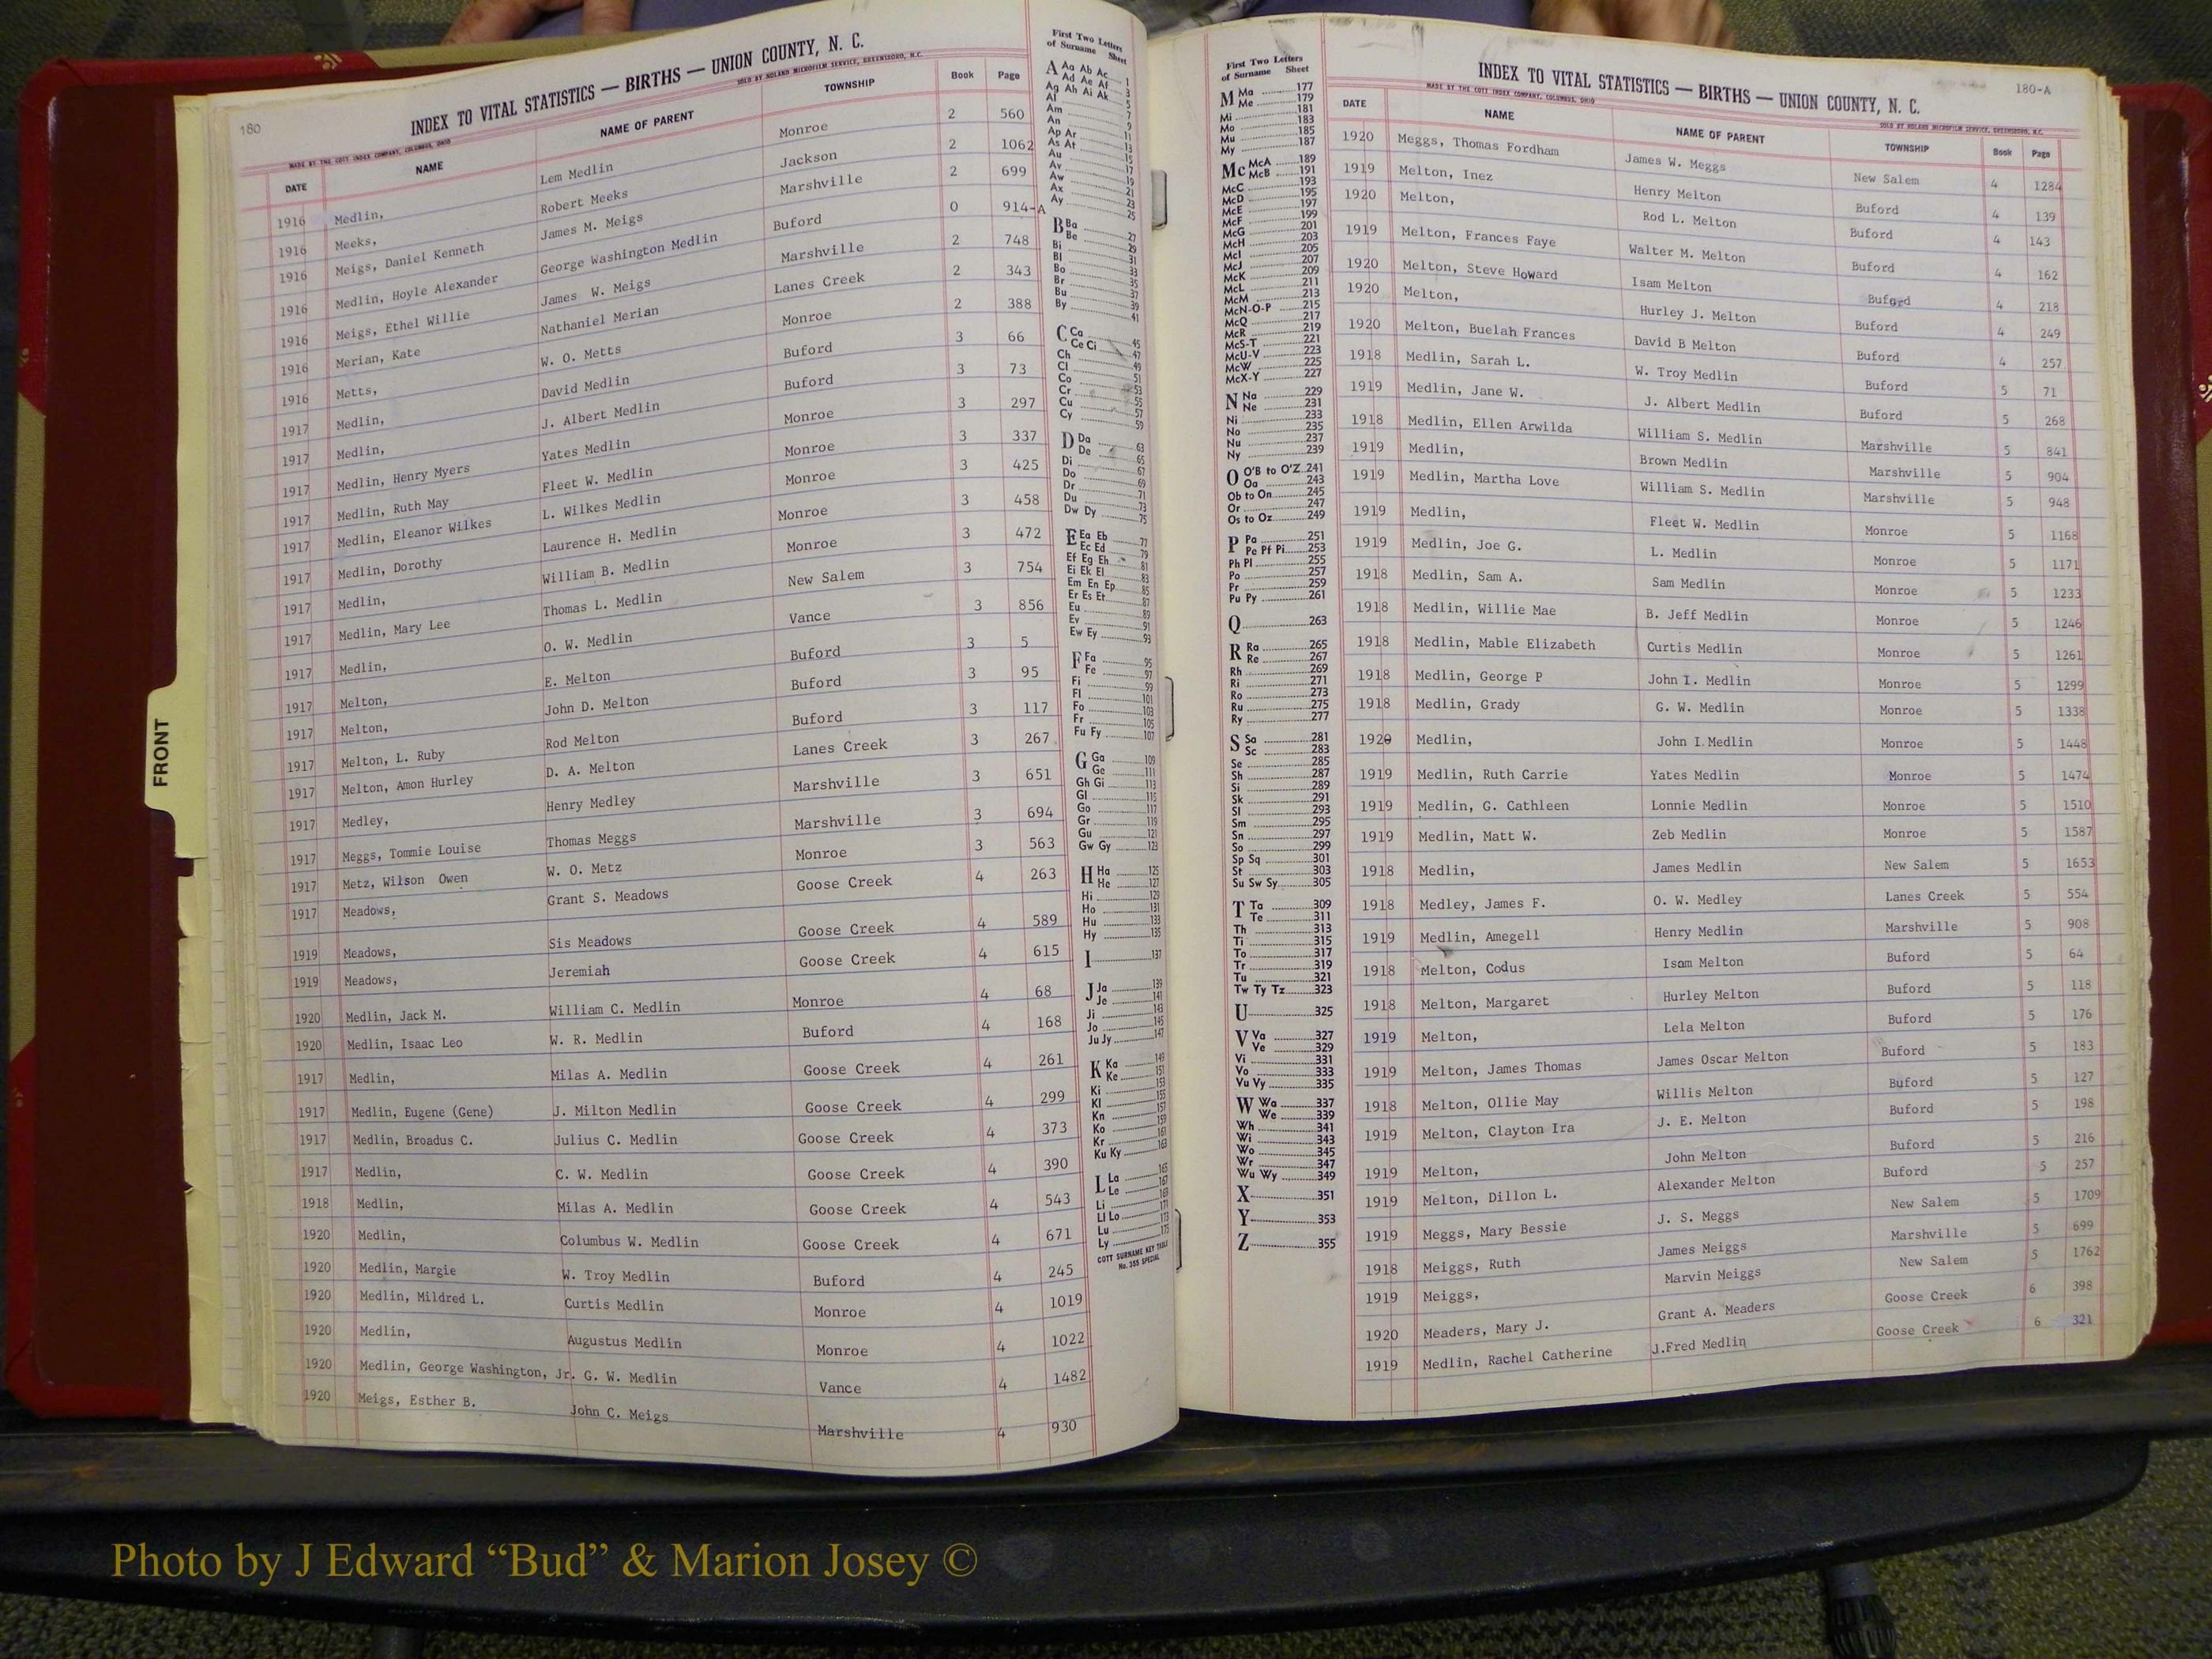 180
INDEX TO VITAL STATISTICS — BIRTHS — UNION COUNTY, N. C.
MADE BY THE COTT INDEX COMPANY, COLUMBUS, OHIO SOLD BY NOLAND MICROFILM SERVICE, GREENSBORO, N.C.
DATE NAME NAME OF PARENT TOWNSHIP Book Page
1916 Medlin, Lem Medlin Monroe 2 560
1916 Meeks, Robert Meeks Jackson 2 1062
1916 Meigs, Daniel Kenneth James M. Meigs Marshville 2 699
1916 Medlin, Hoyle Alexander George Washington Medlin Buford 0 914-A
1916 Meigs, Ethel Willie James W. Meigs Marshville 2 748
1916 Merian, Kate Nathaniel Merian Lanes Creek 2 343
1916 Metts, W. O. Metts Monroe 2 388
1917 Medlin, David Medlin Buford 3 66
1917 Medlin, J. Albert Medlin Buford 3 73
1917 Medlin, Henry Myers Yates Medlin Monroe 3 297
1917 Medlin, Ruth May Fleet W. Medlin Monroe 3 337
1917 Medlin, Eleanor Wilkes L. Wilkes Medlin Monroe 3 425
1917 Medlin, Dorothy Laurence H. Medlin Monroe 3 458
1917 Medlin, William B. Medlin Monroe 3 472
1917 Medlin, Mary Lee Thomas L. Medlin New Salem 3 754
1917 Medlin, O. W. Medlin Vance 3 856
1917 Melton, E. Melton Buford 3 5
1917 Melton, John D. Melton Buford 3 95
1917 Melton, L. Ruby Rod Melton Buford 3 117
1917 Melton, Amon Hurley D. A. Melton Lanes Creek 3 267
1917 Medley, Henry Medley Marshville 3 651
1917 Meggs, Tommie Louise Thomas Meggs Marshville 3 694
1917 Metz, Wilson Owen W. O. Metz Monroe 3 563
1917 Meadows, Grant S. Meadows Goose Creek 4 263
1919 Meadows, Sis Meadows Goose Creek 4 589
1919 Meadows, Jeremiah Goose Creek 4 615
1920 Medlin, Jack M. William C. Medlin Monroe 4 68
1920 Medlin, Isaac Leo W. R. Medlin Buford 4 168
1917 Medlin, Milas A. Medlin Goose Creek 4 261
1917 Medlin, Eugene (Gene) J. Milton Medlin Goose Creek 4 299
1917 Medlin, Broadus C. Julius C. Medlin Goose Creek 4 373
1917 Medlin, C. W. Medlin Goose Creek 4 390
1918 Medlin, Milas A. Medlin Goose Creek 4 543
1920 Medlin, Columbus W. Medlin Goose Creek 4 671
1920 Medlin, Margie W. Troy Medlin Buford 4 245
1920 Medlin, Mildred L. Curtis Medlin Monroe 4 1019
1920 Medlin, Augustus Medlin Monroe 4 1022
1920 Medlin, George Washington, Jr. G. W. Medlin Vance 4 1482
1920 Meigs, Esther B. John C. Meigs Marshville 4 930
FRONT
First Two Letters
of Surname Sheet
A Aa Ab Ac 1
Ad Ae Af 3
Ag Ah Ai Ak 5
Al 7
Am 9
An 11
Ap Ar 13
As At 15
Au 17
Av 19
Aw 21
Ax 23
Ay 25
B Ba 27
Be 29
Bi 31
Bl 33
Bo 35
Br 37
Bu 39
By 41
C Ca 45
Ce Ci 47
Ch 49
Cl 51
Co 53
Cr 55
Cu 57
Cy 59
D Da 63
De 65
Di 67
Do 69
Dr 71
Du 73
Dw Dy 75
E Ea Eb 77
Ec Ed 79
Ef Eg Eh 81
Ei Ek El 83
Em En Ep 85
Er Es Et 87
Eu 89
Ev 91
Ew Ey 93
F Fa 95
Fe 97
Fi 99
Fl 101
Fo 103
Fr 105
Fu Fy 107
G Ga 109
Ge 111
Gh Gi 113
Gl 115
Go 117
Gr 119
Gu 121
Gw Gy 123
H Ha 125
He 127
Hi 129
Ho 131
Hu 133
Hy 135
I 137
J Ja 139
Je 141
Ji 143
Jo 145
Ju Jy 147
K Ka 149
Ke 151
Ki 153
Kl 155
Kn 157
Ko 159
Kr 161
Ku Ky 163
L La 165
Le 167
Li 169
Ll Lo 171
Lu 173
Ly 175
COTT SURNAME KEY TABLE
No. 355 SPECIAL
First Two Letters
of Surname Sheet
M Ma 177
Me 179
Mi 181
Mo 183
Mu 185
My 187
Mc McA 189
McB 191
McC 193
McD 195
McE 197
McF 199
McG 201
McH 203
McI 205
McJ 207
McK 209
McL 211
McM 213
McN-O-P 215
McQ 217
McR 219
McS-T 221
McU-V 223
McW 225
McX-Y 227
N Na 229
Ne 231
Ni 233
No 235
Nu 237
Ny 239
O O'B to O'Z 241
Oa 243
Ob to On 245
Or 247
Os to Oz 249
P Pa 251
Pe Pf Pi 253
Ph Pl 255
Po 257
Pr 259
Pu Py 261
Q 263
R Ra 265
Re 267
Rh 269
Ri 271
Ro 273
Ru 275
Ry 277
S Sa 281
Sc 283
Se 285
Sh 287
Si 289
Sk 291
Sl 293
Sm 295
Sn 297
So 299
Sp Sq 301
St 303
Su Sw Sy 305
T Ta 309
Te 311
Th 313
Ti 315
To 317
Tr 319
Tu 321
Tw Ty Tz 323
U 325
V Va 327
Ve 329
Vi 331
Vo 333
Vu Vy 335
W Wa 337
We 339
Wh 341
Wi 343
Wo 345
Wr 347
Wu Wy 349
X 351
Y 353
Z 355
180-A
INDEX TO VITAL STATISTICS — BIRTHS — UNION COUNTY, N. C.
MADE BY THE COTT INDEX COMPANY, COLUMBUS, OHIO SOLD BY NOLAND MICROFILM SERVICE, GREENSBORO, N.C.
DATE NAME NAME OF PARENT TOWNSHIP Book Page
1920 Meggs, Thomas Fordham James W. Meggs New Salem 4 1284
1919 Melton, Inez Henry Melton Buford 4 139
1920 Melton, Rod L. Melton Buford 4 143
1919 Melton, Frances Faye Walter M. Melton Buford 4 162
1920 Melton, Steve Howard Isam Melton Buford 4 218
1920 Melton, Hurley J. Melton Buford 4 249
1920 Melton, Buelah Frances David B Melton Buford 4 257
1918 Medlin, Sarah L. W. Troy Medlin Buford 5 71
1919 Medlin, Jane W. J. Albert Medlin Buford 5 268
1918 Medlin, Ellen Arwilda William S. Medlin Marshville 5 841
1919 Medlin, Brown Medlin Marshville 5 904
1919 Medlin, Martha Love William S. Medlin Marshville 5 948
1919 Medlin, Fleet W. Medlin Monroe 5 1168
1919 Medlin, Joe G. L. Medlin Monroe 5 1171
1918 Medlin, Sam A. Sam Medlin Monroe 5 1233
1918 Medlin, Willie Mae B. Jeff Medlin Monroe 5 1246
1918 Medlin, Mable Elizabeth Curtis Medlin Monroe 5 1261
1918 Medlin, George P John I. Medlin Monroe 5 1299
1918 Medlin, Grady G. W. Medlin Monroe 5 1338
1920 Medlin, John I. Medlin Monroe 5 1448
1919 Medlin, Ruth Carrie Yates Medlin Monroe 5 1474
1919 Medlin, G. Cathleen Lonnie Medlin Monroe 5 1510
1919 Medlin, Matt W. Zeb Medlin Monroe 5 1587
1918 Medlin, James Medlin New Salem 5 1653
1918 Medley, James F. O. W. Medley Lanes Creek 5 554
1919 Medlin, Amegell Henry Medlin Marshville 5 908
1918 Melton, Codus Isom Melton Buford 5 64
1918 Melton, Margaret Hurley Melton Buford 5 118
1919 Melton, Lela Melton Buford 5 176
1919 Melton, James Thomas James Oscar Melton Buford 5 183
1918 Melton, Ollie May Willis Melton Buford 5 127
1919 Melton, Clayton Ira J. E. Melton Buford 5 198
1919 Melton, John Melton Buford 5 216
1919 Melton, Dillon L. Alexander Melton Buford 5 257
1919 Meggs, Mary Bessie J. S. Meggs New Salem 5 1709
1918 Meiggs, Ruth James Meiggs Marshville 5 699
1919 Meiggs, Marvin Meiggs New Salem 5 1762
1920 Meaders, Mary J. Grant A. Meaders Goose Creek 6 398
1919 Medlin, Rachel Catherine J.Fred Medlin Goose Creek 6 321
Photo by J Edward “Bud” & Marion Josey ©